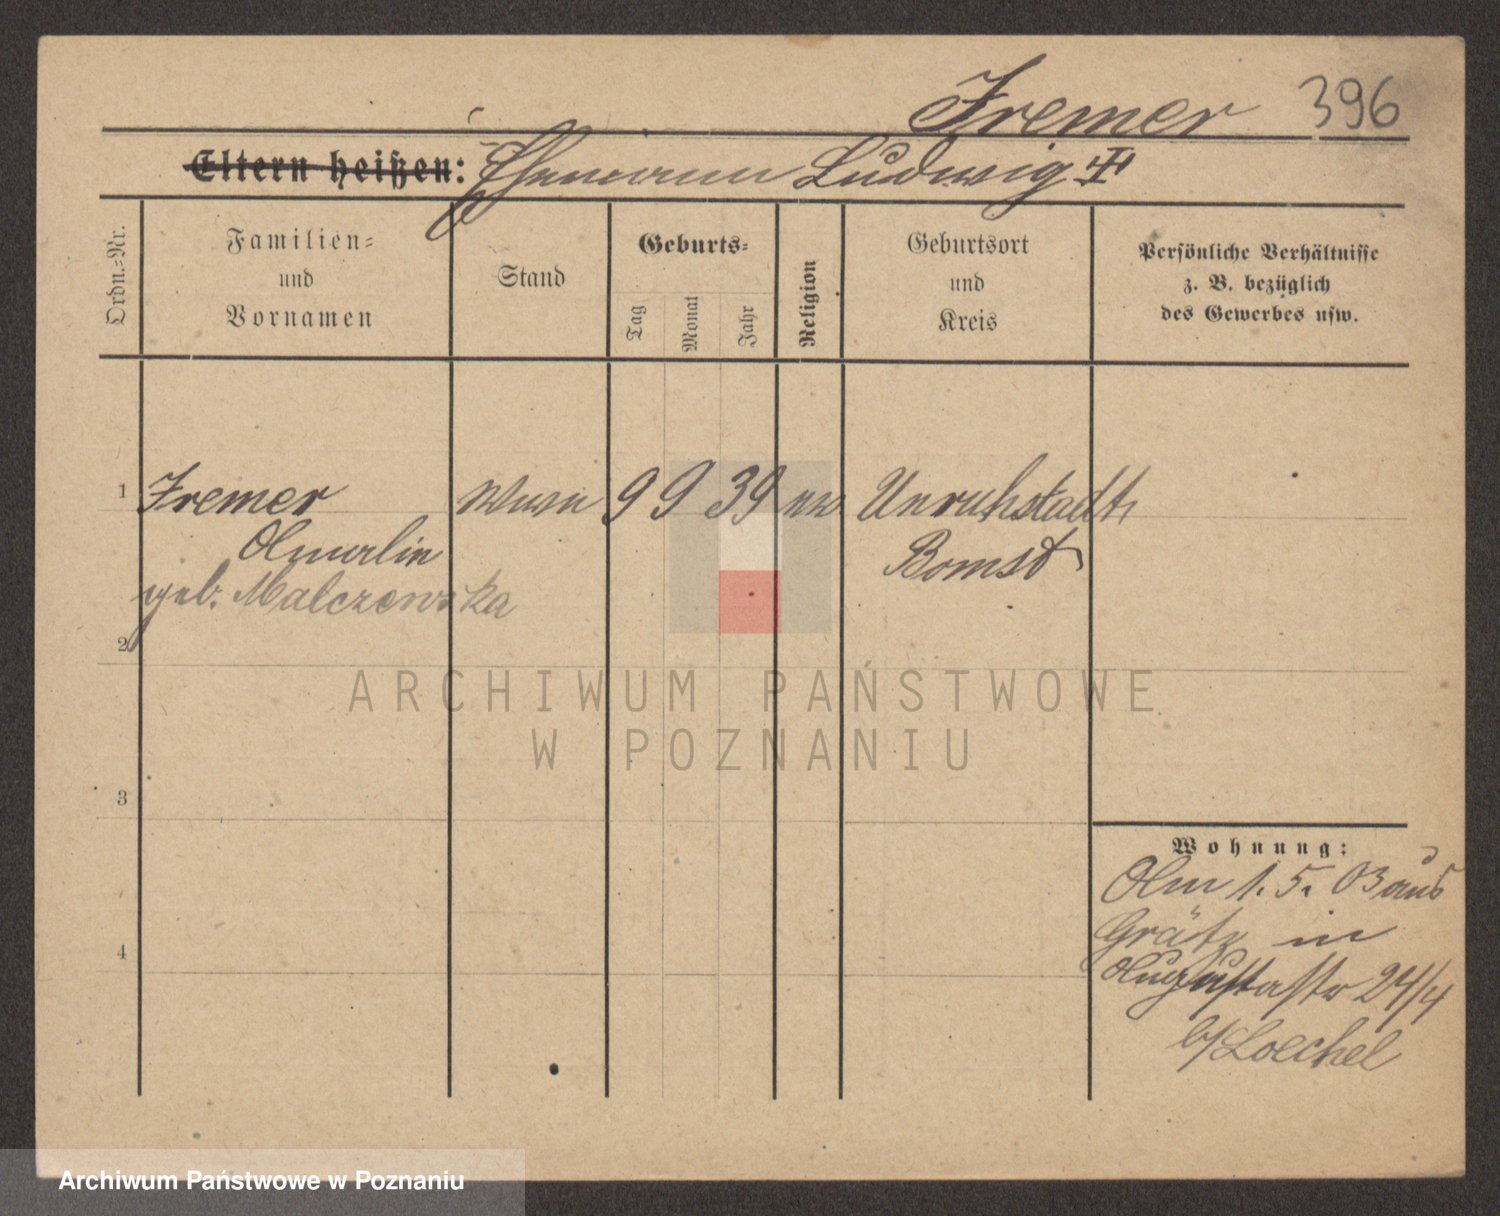 Fremer 396
Eltern heißen: Ehemann Ludwig
Ordn.-Nr.
Familien-
und
Vornamen
Stand
Geburts-
Tag
Monat
Jahr
Religion
Geburtsort
und
Kreis
Persönliche Verhältnisse
z. B. bezüglich
des Gewerbes usw.
1 Fremer 9 9 39 ev Unruhstadt
Amalie Bomst
geb. Malczewska
2
3
4
Wohnung:
Am 1. 5. 03 aus
Grätz in
Augustastr 24/4
b/Loechel
ARCHIWUM PAŃSTWOWE
W POZNANIU
Archiwum Państwowe w Poznaniu